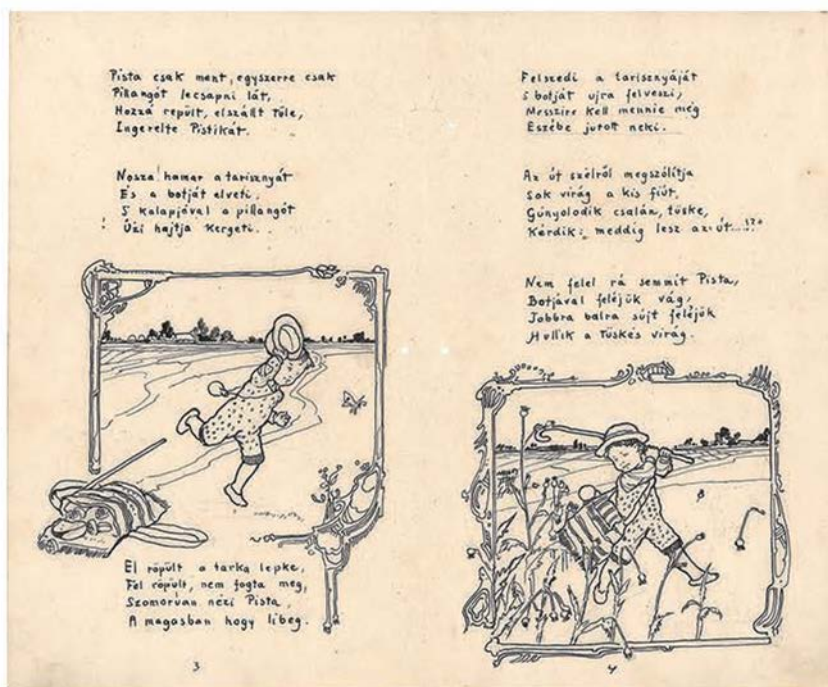 Pista csak ment, egyszerre csak
Pillangót lecsapni lát,
Hozzá repült, elszállt tőle,
Ingerelte Pistikát.
Nosza! hamar a tarisznyát
És a botját elveti,
S kalapjával a pillangót
Űzi hajtja kergeti.
El röpült a tarka lepke,
Fel röpült, nem fogta meg,
Szomorúan nézi Pista,
A magasban hogy libeg.
3
Felszedi a tarisznyáját
S botját ujra felveszi,
Messzire kell mennie még
Eszébe jutott neki.
Az út szélről megszólítja
Sok virág a kis fiút,
Gúnyolodik csalán, tüske,
Kérdik: meddig lesz az út....!?
Nem felel rá semmit Pista,
Botjával feléjük vág,
Jobbra balra sújt feléjük
Hullik a tüskés virág.
4